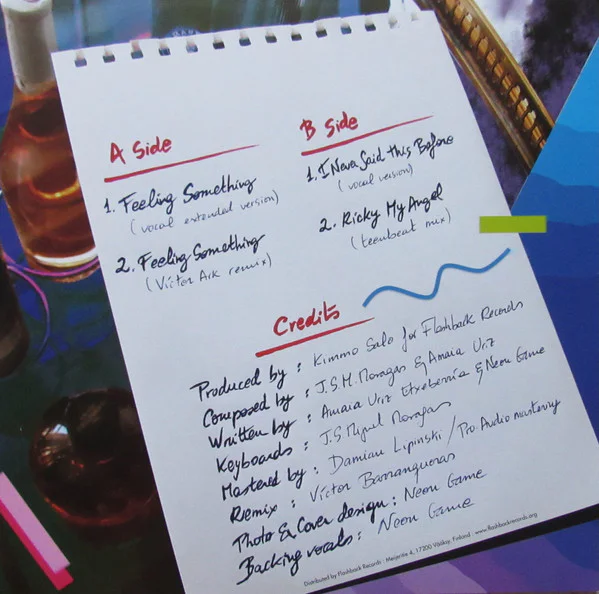 A Side
1. Feeling Something
(vocal extended version)
2. Feeling Something
(Víctor Ark remix)
B Side
1. I Never Said this Before
(vocal version)
2. Ricky My Angel
(teenbeat mix)
Credits
Produced by : Kimmo Salo for Flashback Records
Composed by : J.S.M. Moragas & Amaia Uriz
Written by : Amaia Uriz Etxeberría & Neon Game
Keyboards : J.S. Miguel Moragas
Mastered by : Damian Lipinski / Pro Audio mastering
Remix : Víctor Barranqueras
Photo & Cover design : Neon Game
Backing vocals : Neon Game
Distributed by Flashback Records - Meijeritie 4, 17200 Vääksy, Finland - www.flashbackrecords.org